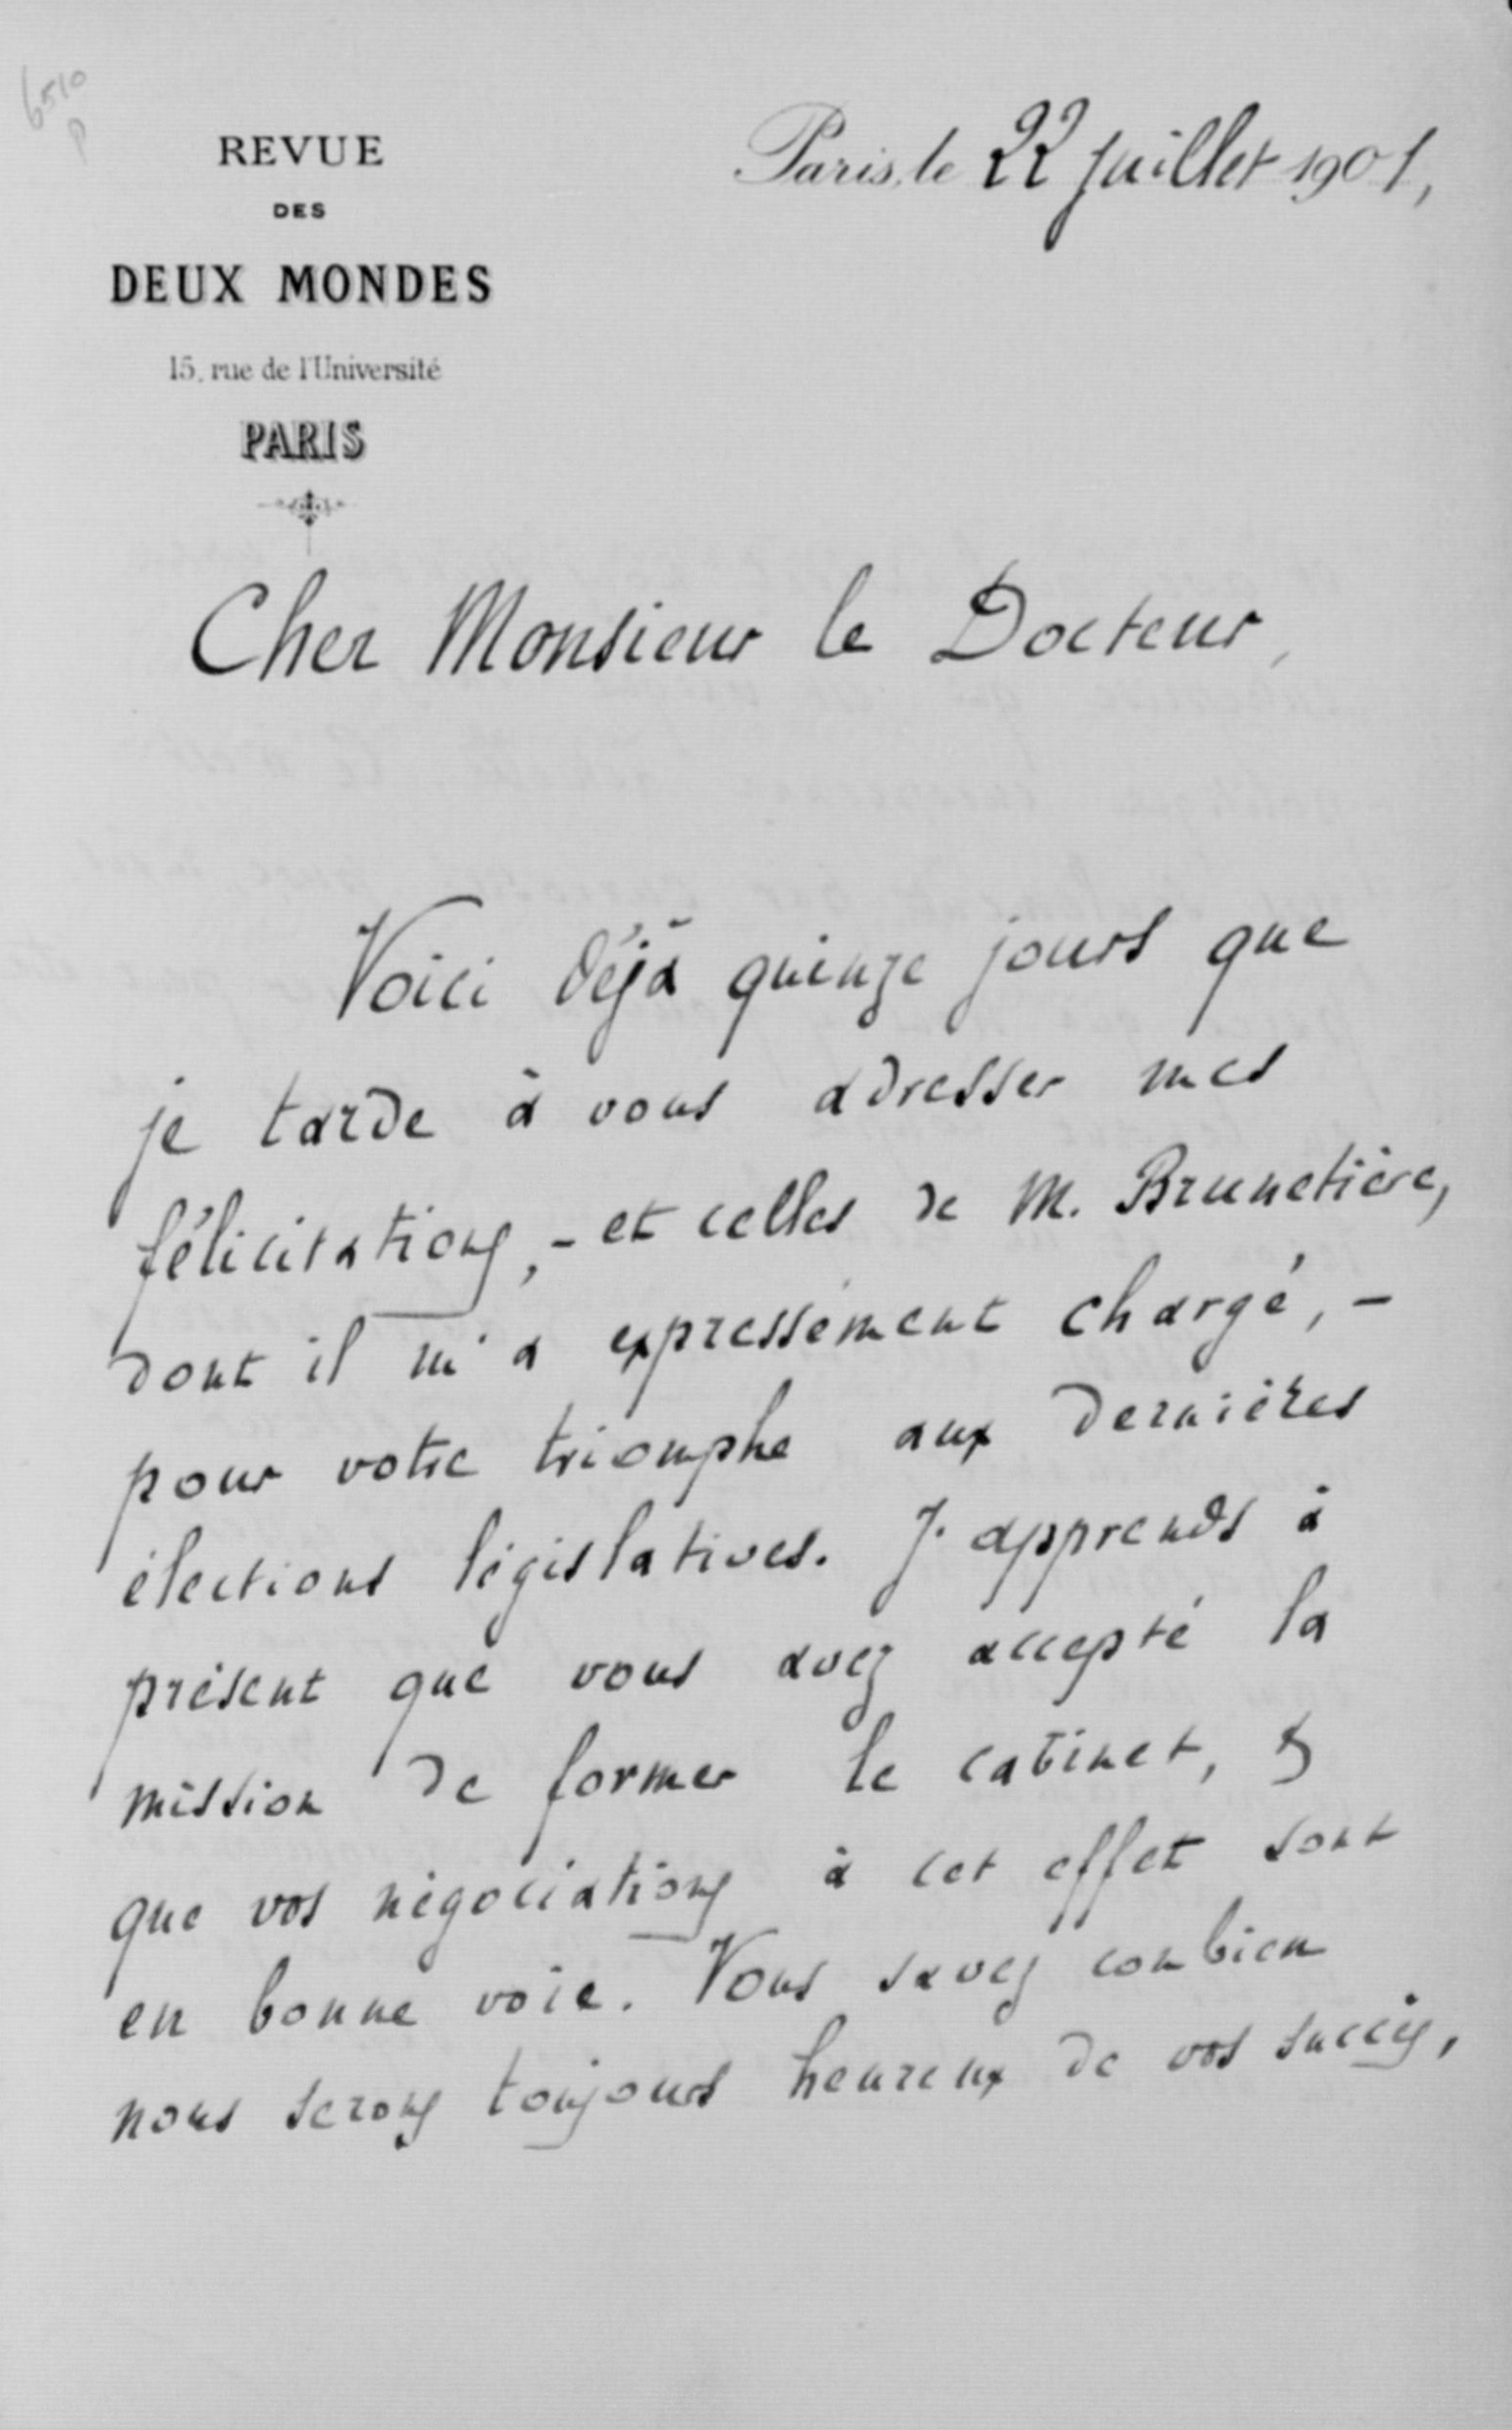 6510
P
REVUE
DES
DEUX MONDES
15, rue de l'Université
PARIS
Paris, le 22 juillet 1901,
Cher Monsieur le Docteur,
Voici déjà quinze jours que
je tarde à vous adresser mes
félicitations, - et celles de M. Brunetière,
dont il m'a expressément chargé, -
pour votre triomphe aux dernières
élections législatives. J'apprends à
présent que vous avez accepté la
mission de former le cabinet, &
que vos négociations à cet effet sont
en bonne voie. Vous savez combien
nous serons toujours heureux de vos succès,